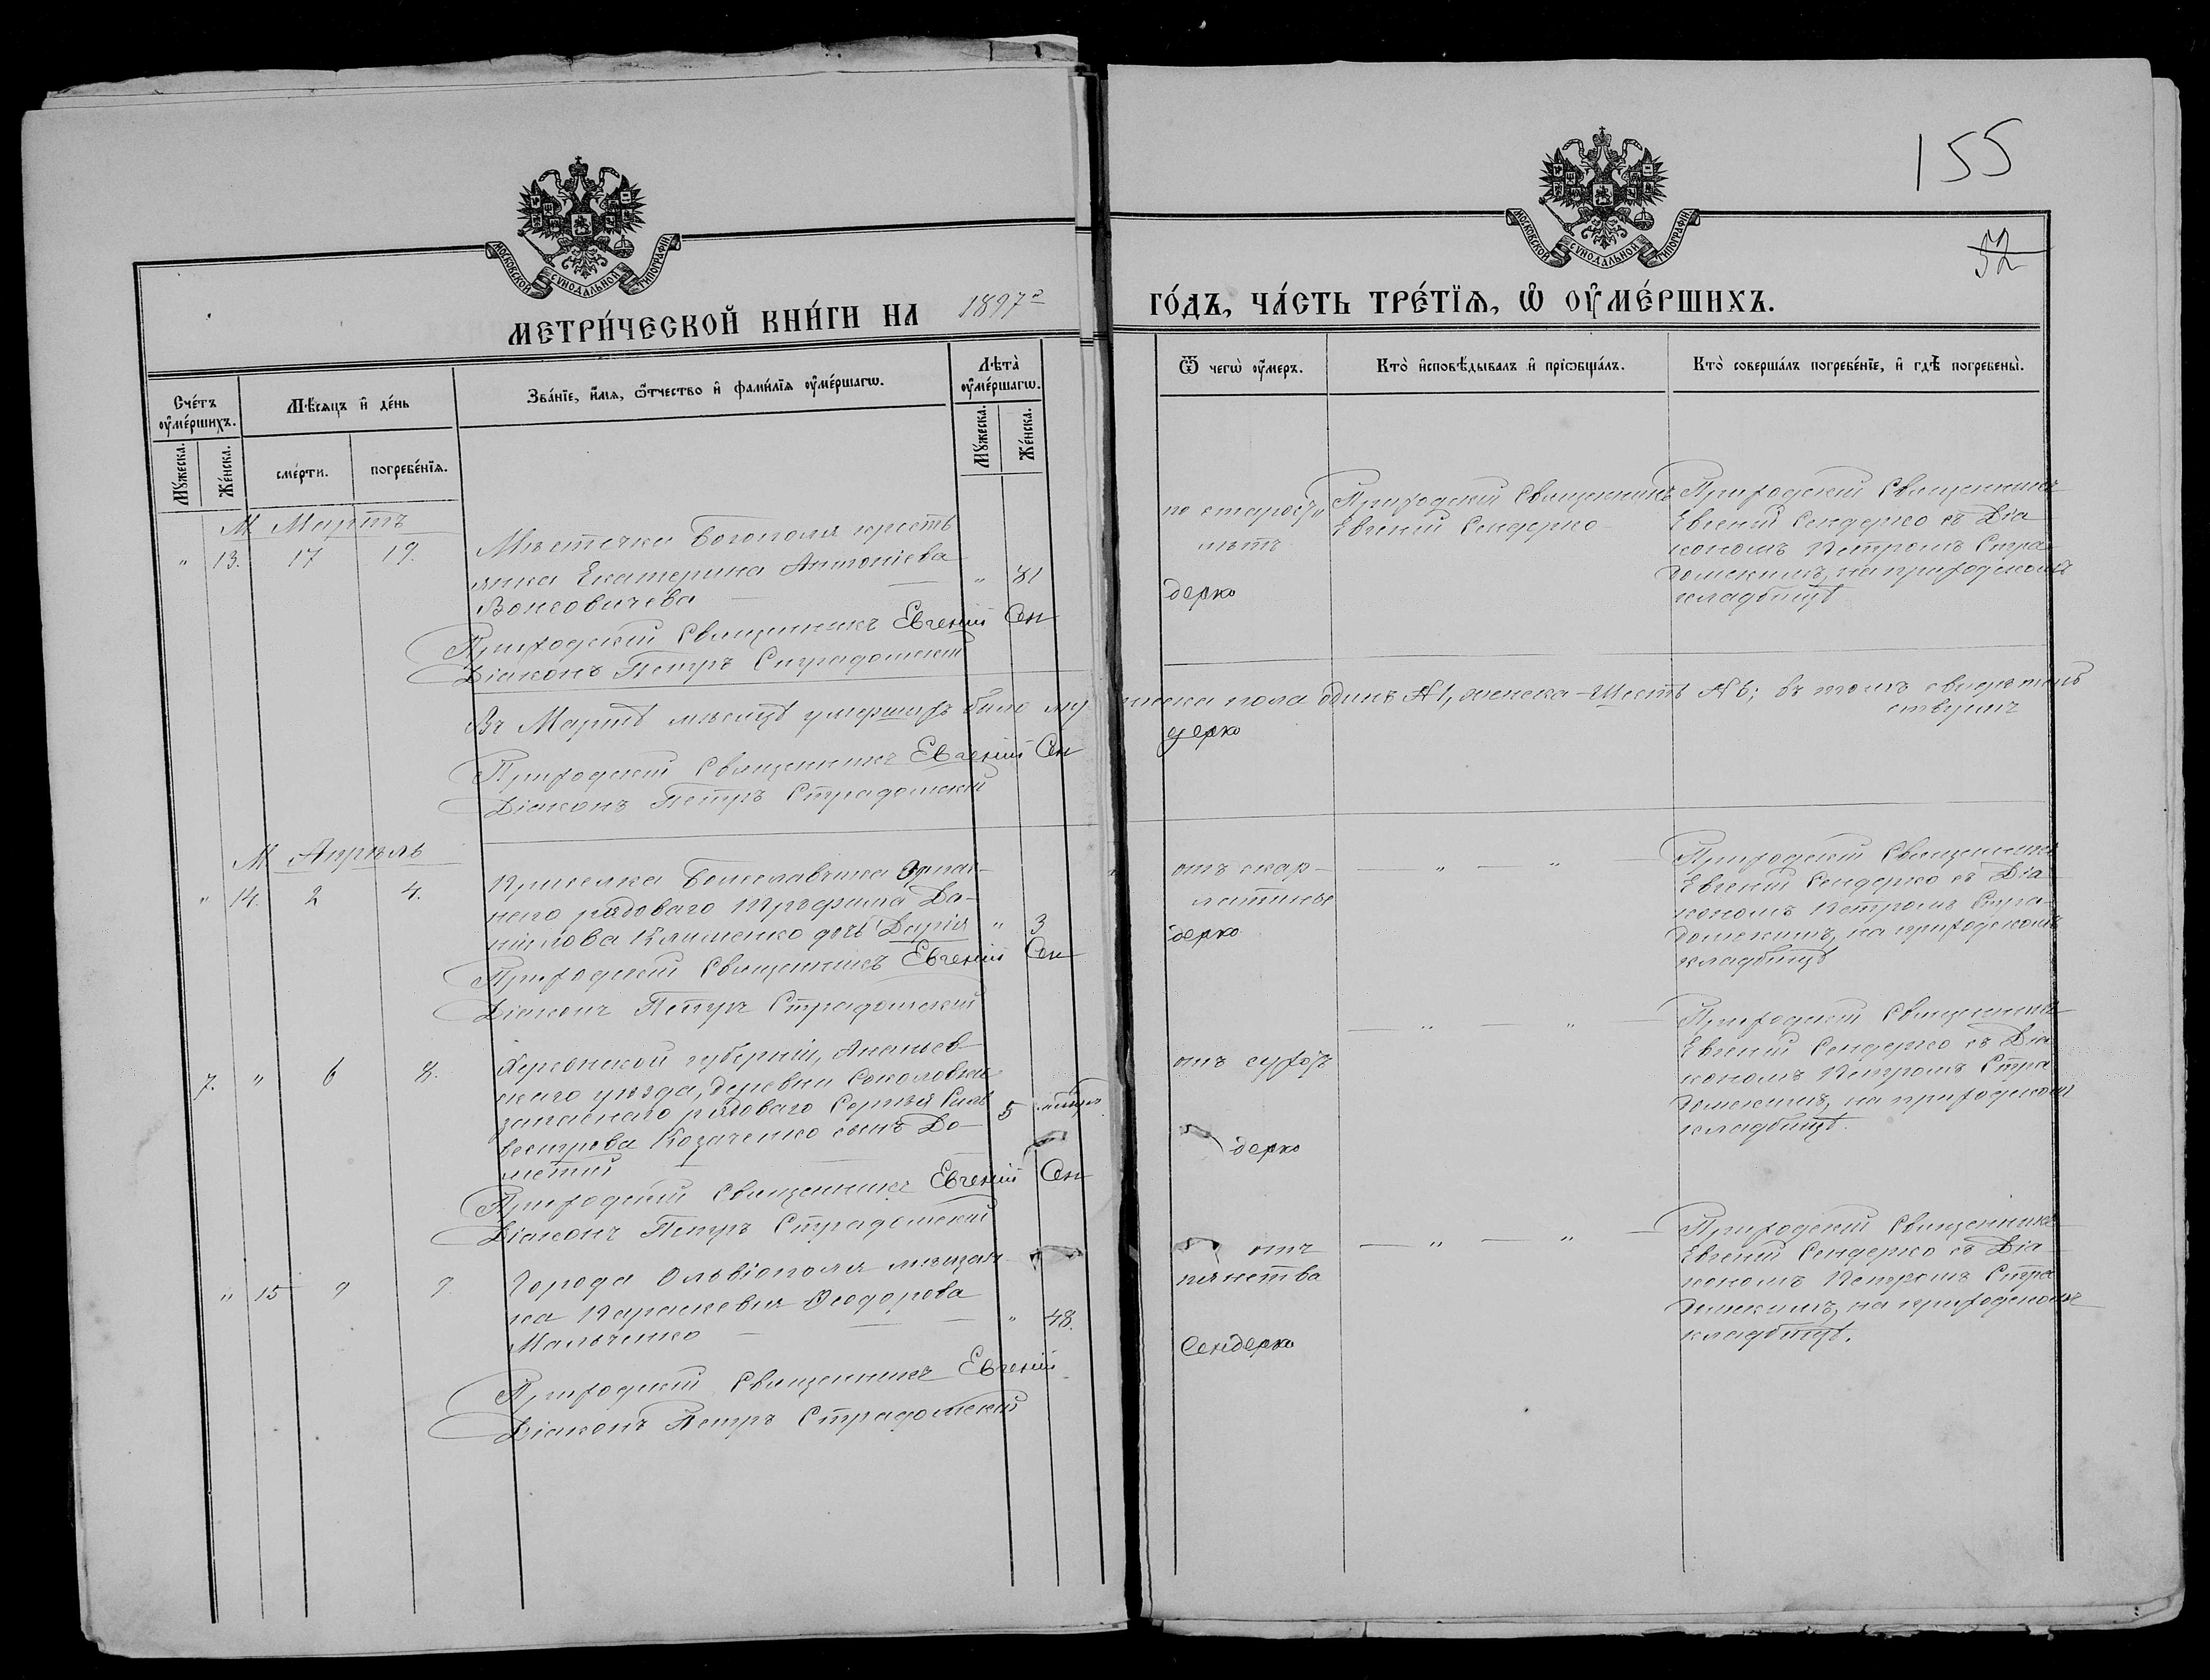 155
52
МОСКОВСКОЙ СѴНОДАЛЬНОЙ ТИПОГРАФІИ
МОСКОВСКОЙ СѴНОДАЛЬНОЙ ТИПОГРАФІИ
МЕТРИ́ЧЕСКОЙ КНИ́ГИ НА 1897 г
ГО́ДЪ, ЧА́СТЬ ТРЕ́ТІѦ, Ѽ ОУ҆МЕ́РШИХЪ.
Сче́тъ оу҆ме́ршихъ.
Мѣ́сѧцъ и҆ де́нь
Зва́нїе, и҆́мѧ, ѻ҆́тчество и҆ фами́лїѧ оу҆ме́ршагѡ.
Лѣта̀ оу҆ме́ршагѡ.
Ѿ чегѡ̀ оу҆́меръ.
Кто̀ и҆сповѣ́дывалъ и҆ прїѡбща́лъ.
Кто̀ соверша́лъ погребе́нїе, и҆ гдѣ̀ погребены̀.
Мꙋ́жеска.
Же́нска.
сме́рти.
погребе́нїѧ.
Мꙋ́жеска.
Же́нска.
М Мартъ
" 13. 17 19.
Мѣстечка Богополя кресть
янка Екатерина Антоніева
" 81
по старости
лѣтъ
Приходскій Священникъ
Евгеній Сендерко
Приходскій Священникъ
Евгеній Сендерко съ Діа
кономъ Петромъ Стра
домскимъ, на приходскомъ
кладбищѣ
Приходскій Священникъ Евгеній Сен
дерко
Діаконъ Петръ Страдомскій
Въ Мартѣ мѣсяцѣ умершихъ было му
жеска пола одинъ № 1, женска – Шесть № 6; въ томъ свидѣтель
ствуемъ
Приходскій Священникъ Евгеній Сен
дерко
Діаконъ Петръ Страдомскій
М Апрѣль
" 14. 2 4.
нилова Клименко дочь Дарія " 3
отъ скар-
латины
— " — " —
Приходскій Священникъ
Евгеній Сендерко съ Діа
кономъ Петромъ Стра-
домскимъ, на приходскомъ
кладбищѣ
Приходскій Священникъ Евгеній Сен
дерко
Діаконъ Петръ Страдомскій
7. " 6 8.
Херсонской губерніи, Ананьев-
скаго уѣзда, деревни Соколовки
запаснаго рядоваго Сергѣя Силь
вестрова Козаченко сынъ До-
метій
5
отъ сухотъ
— " — " —
Приходскій Священникъ
Евгеній Сендерко съ Діа
кономъ Петромъ Стра
домскимъ, на приходскомъ
кладбищѣ.
Приходскій Священникъ Евгеній Сен
дерко
Діаконъ Петръ Страдомскій
" 15 9 9.
Города Ольвіополя мѣщан-
ка Параскевия Ѳеодорова
Мальченко — " 48.
отъ
пянства
— " — " —
Приходскій Священникъ
Евгеній Сендерко съ Діа
кономъ Петромъ Стра
домскимъ, на приходскомъ
кладбищѣ.
Приходскій Священникъ Евгеній
Сендерко
Діаконъ Петръ Страдомскій